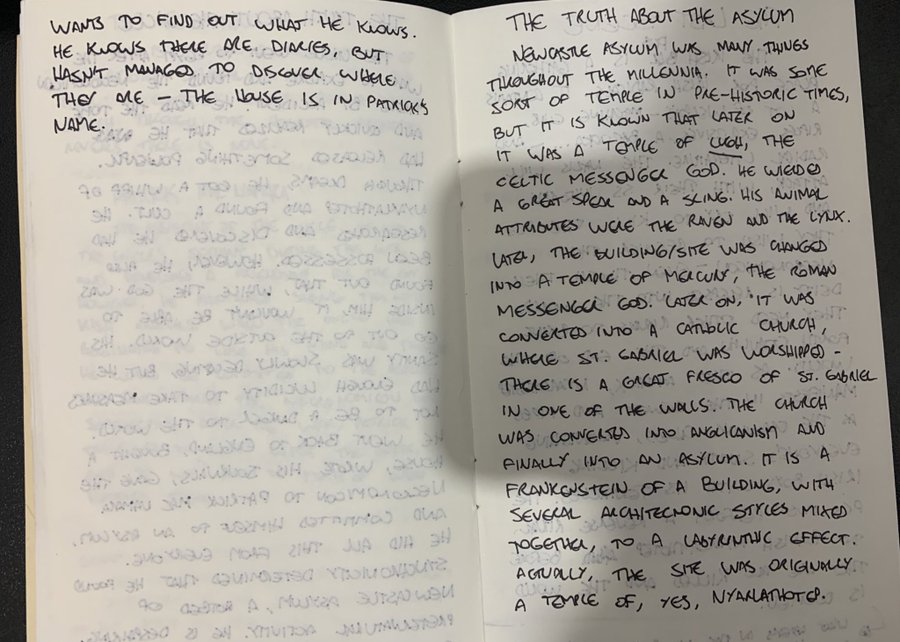 WANTS TO FIND OUT WHAT HE KNOWS.
HE KNOWS THERE ARE DIARIES, BUT
HASN'T MANAGED TO DISCOVER WHERE
THEY ARE – THE HOUSE IS IN PATRICK'S
NAME.
THE TRUTH ABOUT THE ASYLUM
NEWCASTLE ASYLUM WAS MANY THINGS
THROUGHOUT THE MILLENNIA. IT WAS SOME
SORT OF TEMPLE IN PRE-HISTORIC TIMES,
BUT IT IS KNOWN THAT LATER ON
IT WAS A TEMPLE OF LUGH, THE
CELTIC MESSENGER GOD. HE WIELDED
A GREAT SPEAR AND A SLING. HIS ANIMAL
ATTRIBUTES WERE THE RAVEN AND THE LYNX.
LATER, THE BUILDING/SITE WAS CHANGED
INTO A TEMPLE OF MERCURY, THE ROMAN
MESSENGER GOD. LATER ON, IT WAS
CONVERTED INTO A CATHOLIC CHURCH,
WHERE ST. GABRIEL WAS WORSHIPPED –
THERE IS A GREAT FRESCO OF ST. GABRIEL
IN ONE OF THE WALLS. THE CHURCH
WAS CONVERTED INTO ANGLICANISM AND
FINALLY INTO AN ASYLUM. IT IS A
FRANKENSTEIN OF A BUILDING, WITH
SEVERAL ARCHITECNONIC STYLES MIXED
TOGETHER, TO A LABYRINTHIC EFFECT.
ACTUALLY, THE SITE WAS ORIGINALLY
A TEMPLE OF, YES, NYARLATHOTEP.